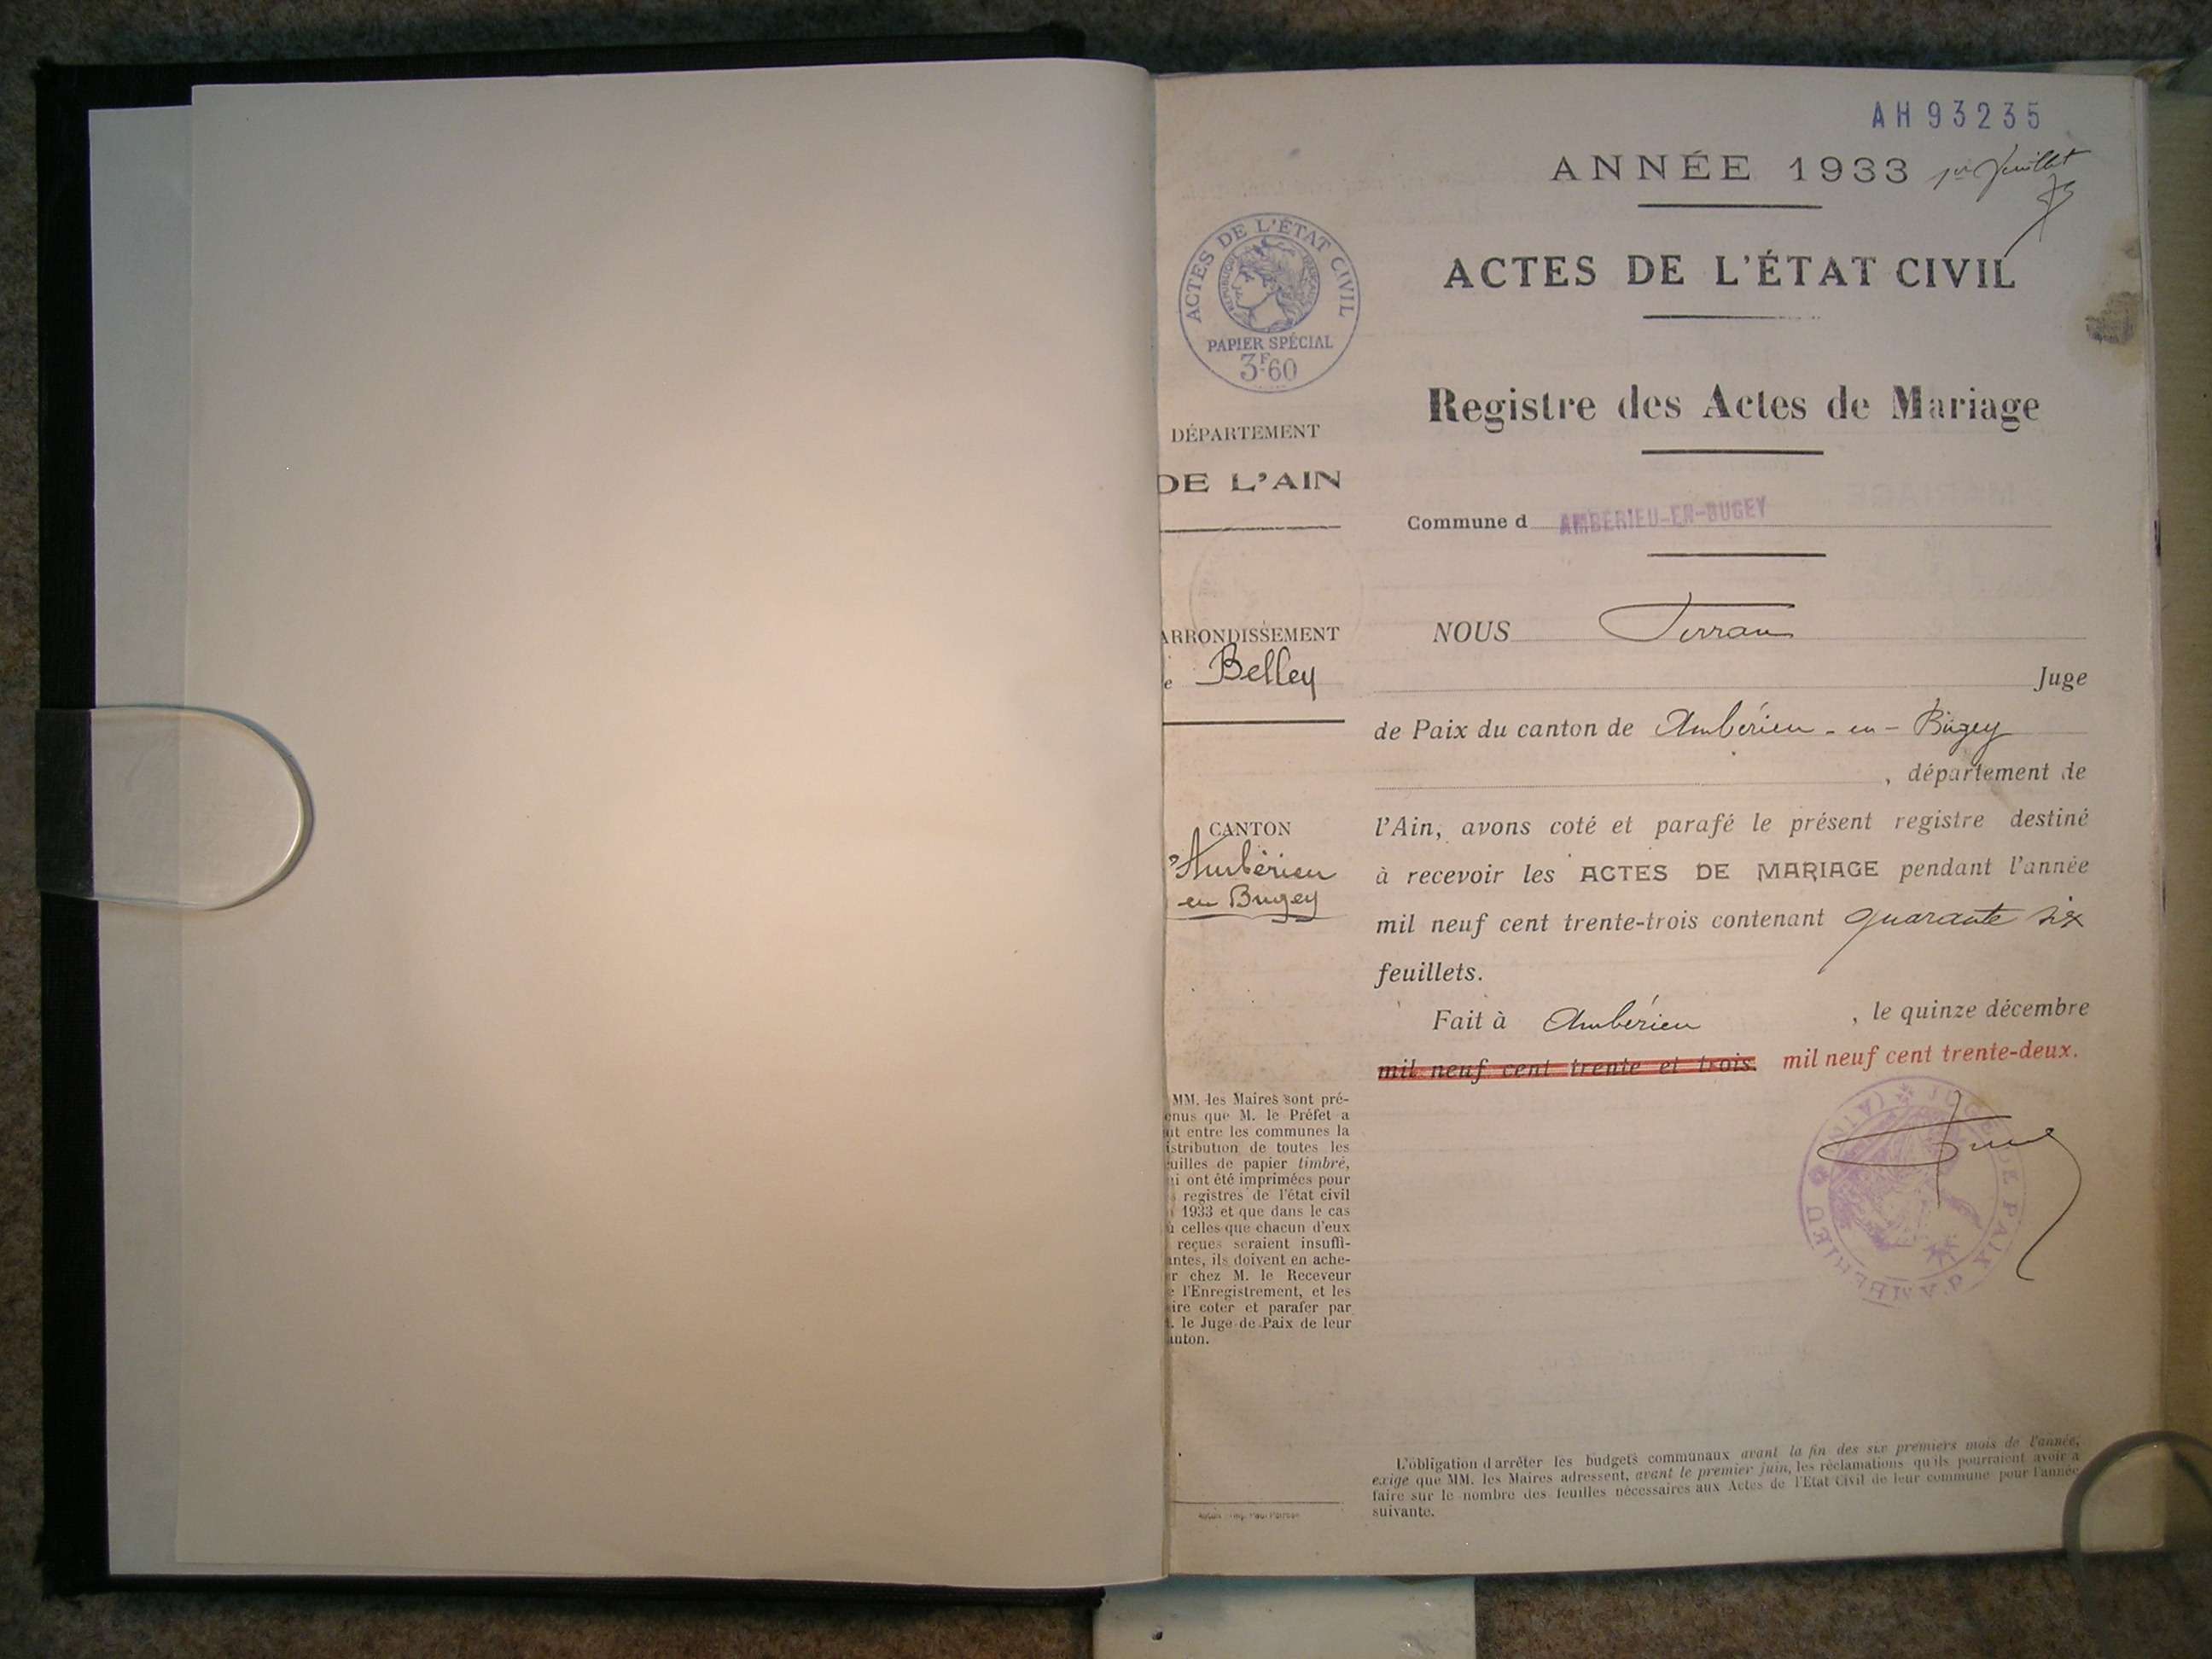 AH 93235
ANNÉE 1933 1er Juillet
ACTES DE L'ÉTAT CIVIL
RÉPUBLIQUE FRANÇAISE
PAPIER SPÉCIAL
3F.60
DÉPARTEMENT
DE L'AIN
ARRONDISSEMENT
e Belley
CANTON
d'Ambérieu
en Bugey
MM. les Maires sont pré-
enus que M. le Préfet a
it entre les communes la
istribution de toutes les
uilles de papier timbré,
i ont été imprimées pour
s registres de l'état civil
1933 et que dans le cas
ù celles que chacun d'eux
reçues seraient insuffi-
antes, ils doivent en ache-
r chez M. le Receveur
e l'Enregistrement, et les
ire coter et parafer par
. le Juge de Paix de leur
anton.
ACTES DE L'ÉTAT CIVIL
Registre des Actes de Mariage
Commune d AMBÉRIEU-EN-BUGEY
NOUS
Juge
de Paix du canton de Ambérieu-en-Bugey
, département de
l'Ain, avons coté et parafé le présent registre destiné
à recevoir les ACTES DE MARIAGE pendant l'année
mil neuf cent trente-trois contenant quarante six
feuillets.
Fait à Ambérieu , le quinze décembre
mil neuf cent trente et trois. mil neuf cent trente-deux.
JUGE DE PAIX D'AMBÉRIEU (AIN)
L'obligation d'arrêter les budgets communaux avant la fin des six premiers mois de l'année,
exige que MM. les Maires adressent, avant le premier juin, les réclamations qu'ils pourraient avoir à
faire sur le nombre des feuilles nécessaires aux Actes de l'Etat Civil de leur commune pour l'année
suivante.